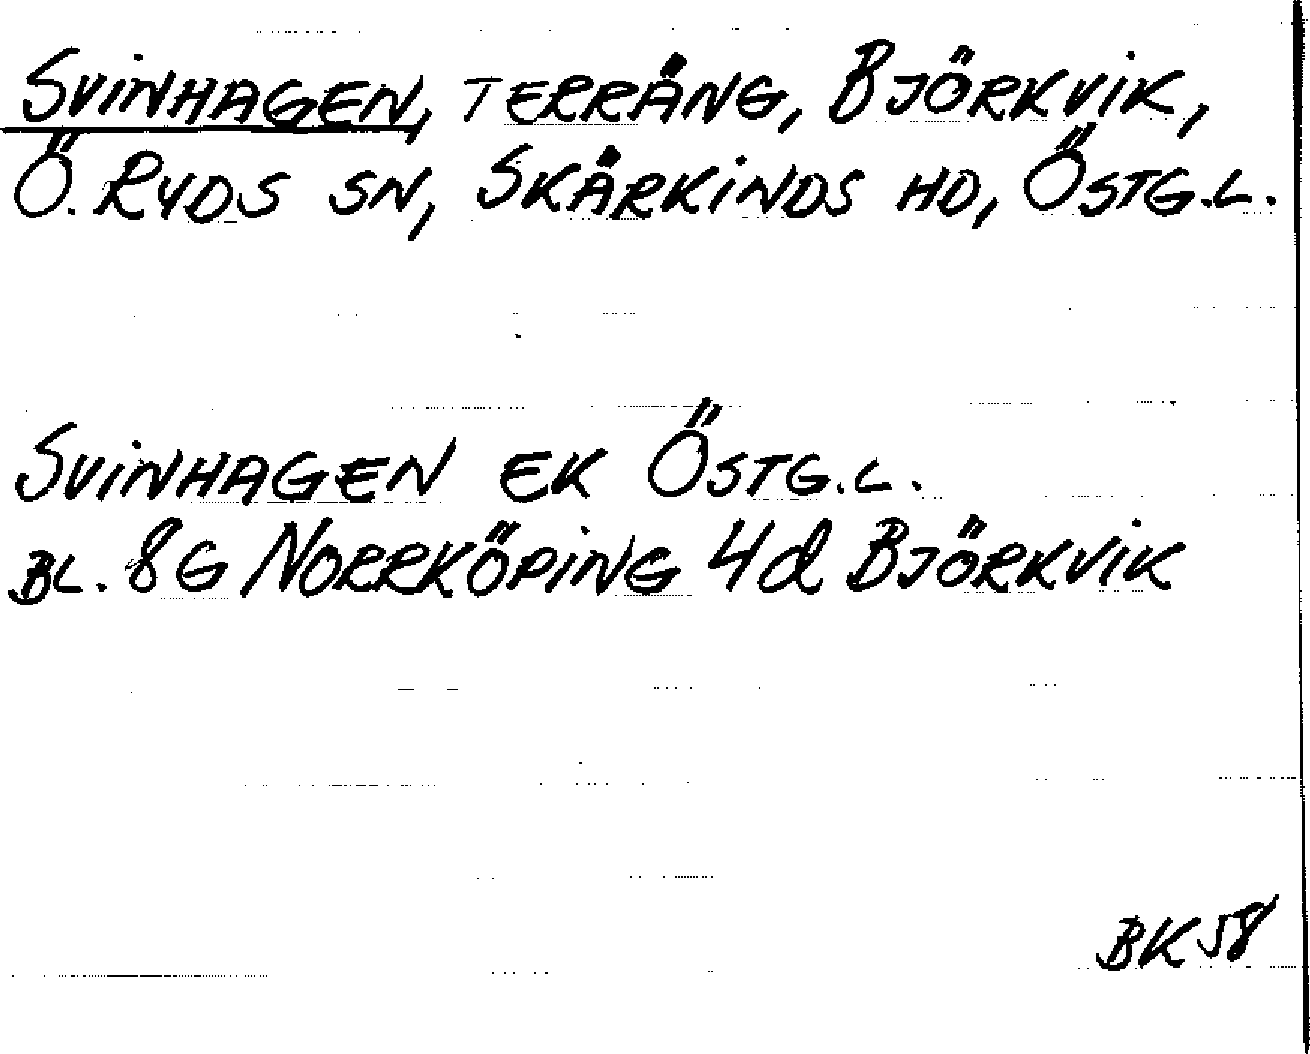 SVINHAGEN, TERRÄNG, BJÖRKVIK,
Ö. RYDS SN, SKÄRKINDS HD, ÖSTG.L.
SVINHAGEN EK ÖSTG.L.
BL. 8G NORRKÖPING 4d BJÖRKVIK
BK58